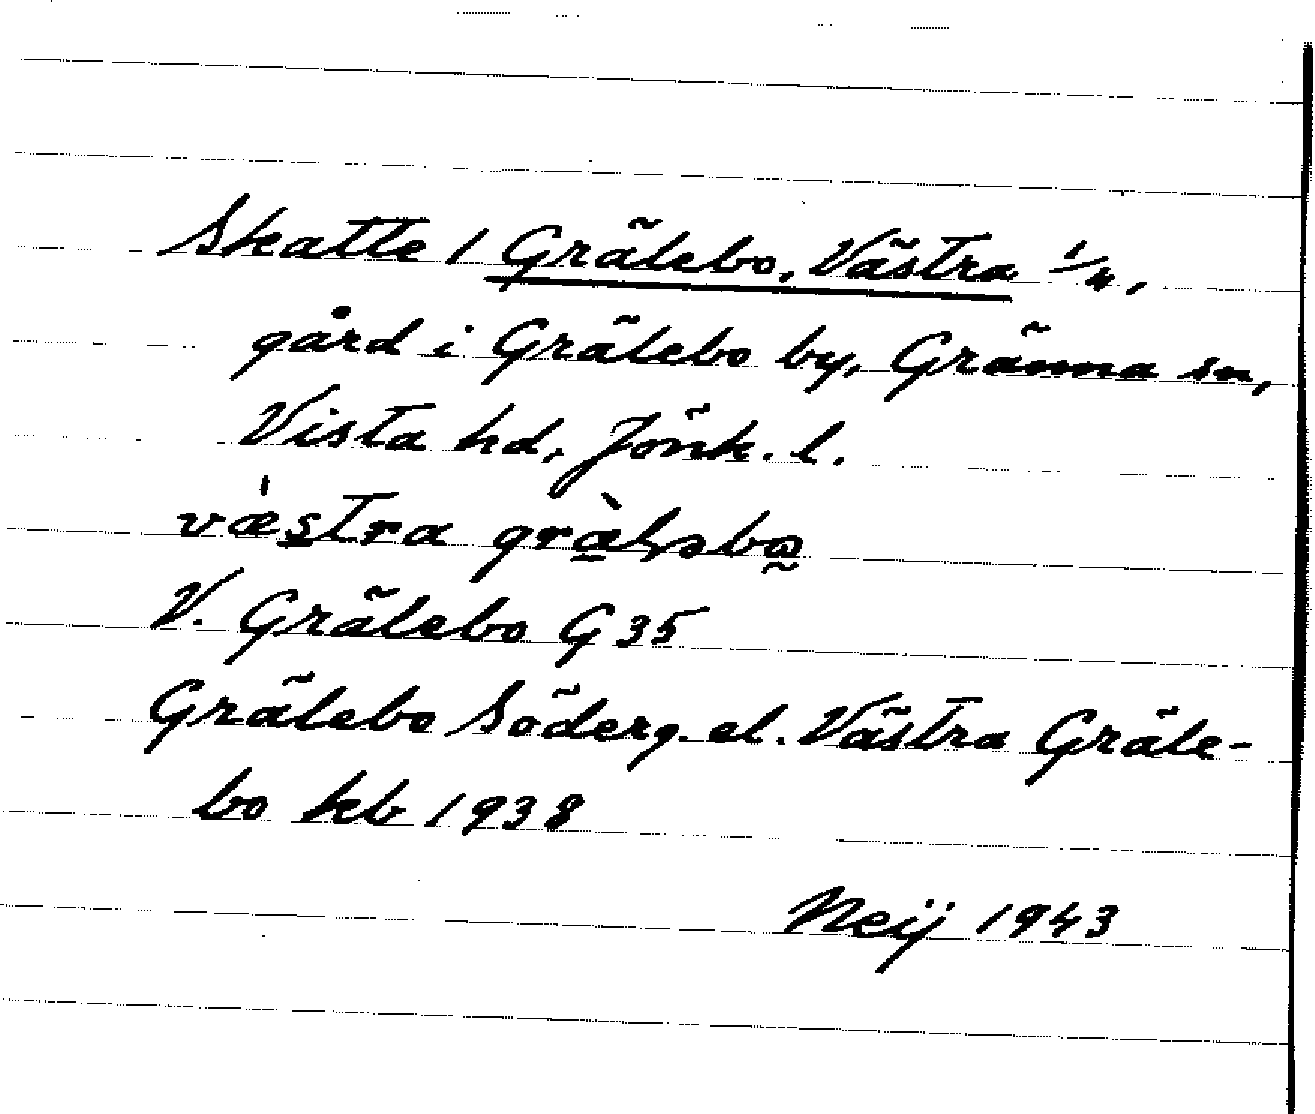 Skatte 1 Grälebo, Västra 1/4,
gård i Grälebo by, Gränna sn,
Vista hd, Jönk. l.
västra
V. Grälebo G 35
Grälebo Söderg. el. Västra Gräle-
bo kb 1938
Neij 1943